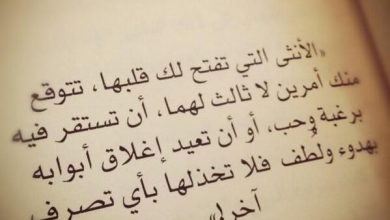 «الأنثى التي تفتح لك قلبها، تتوقع
منك أمرين لا ثالث لهما، أن تستقر فيه
برغبة وحب، أو أن تعيد إغلاق أبوابه
بهدوء ولُطف فلا تخذلها بأي تصرف
آخر!»